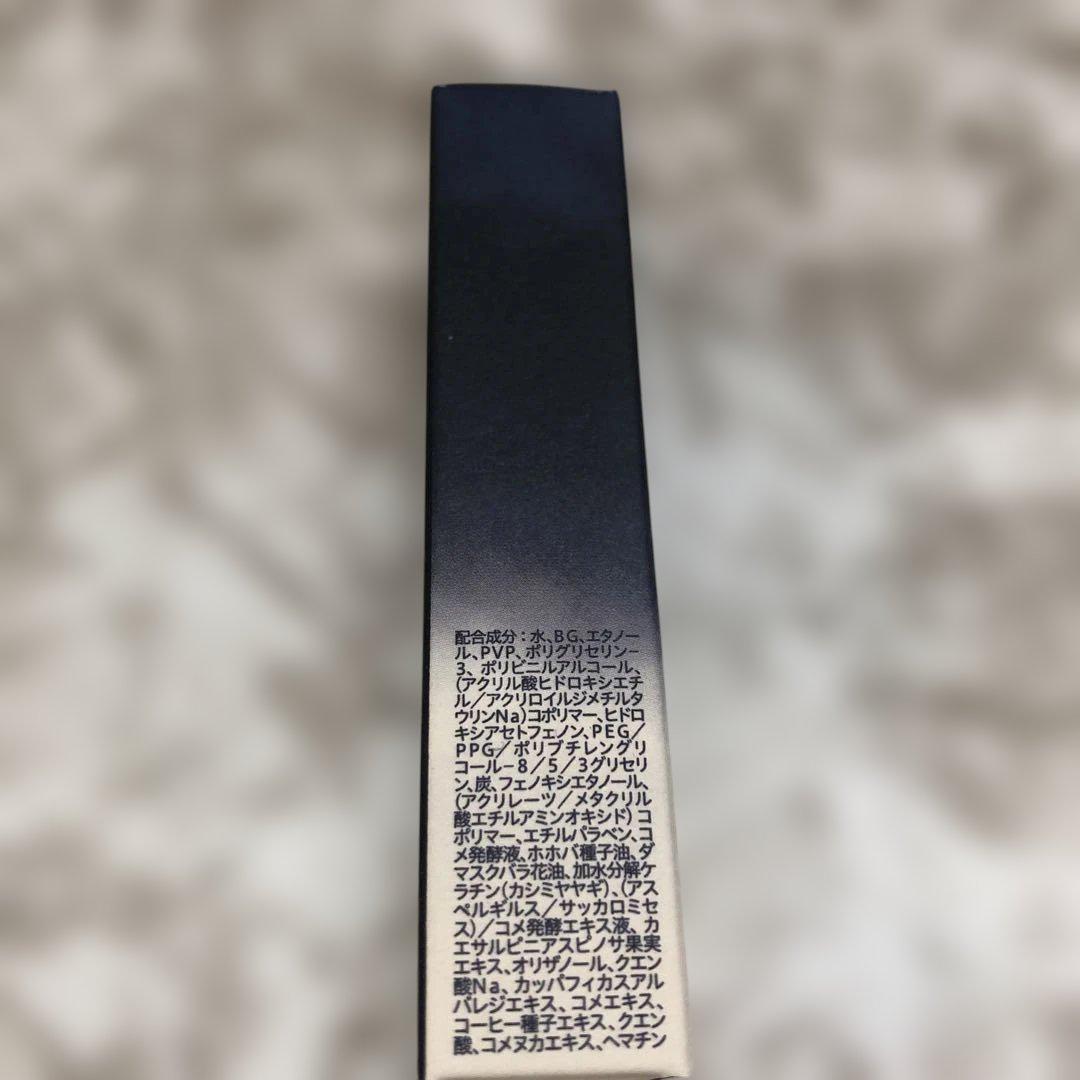 配合成分：水、BG、エタノー
ル、PVP、ポリグリセリン−
3、ポリビニルアルコール、
(アクリル酸ヒドロキシエチ
ル／アクリロイルジメチルタ
ウリンNa)コポリマー、ヒドロ
キシアセトフェノン、PEG／
PPG／ポリブチレングリ
コール−8／5／3グリセリ
ン、炭、フェノキシエタノール、
(アクリレーツ／メタクリル
酸エチルアミンオキシド)コ
ポリマー、エチルパラベン、コ
メ発酵液、ホホバ種子油、ダ
マスクバラ花油、加水分解ケ
ラチン(カシミヤヤギ)、(アス
ペルギルス／サッカロミセ
ス)／コメ発酵エキス液、カ
エサルピニアスピノサ果実
エキス、オリザノール、クエン
酸Na、カッパフィカスアル
バレジエキス、コメエキス、
コーヒー種子エキス、クエン
酸、コメヌカエキス、ヘマチン